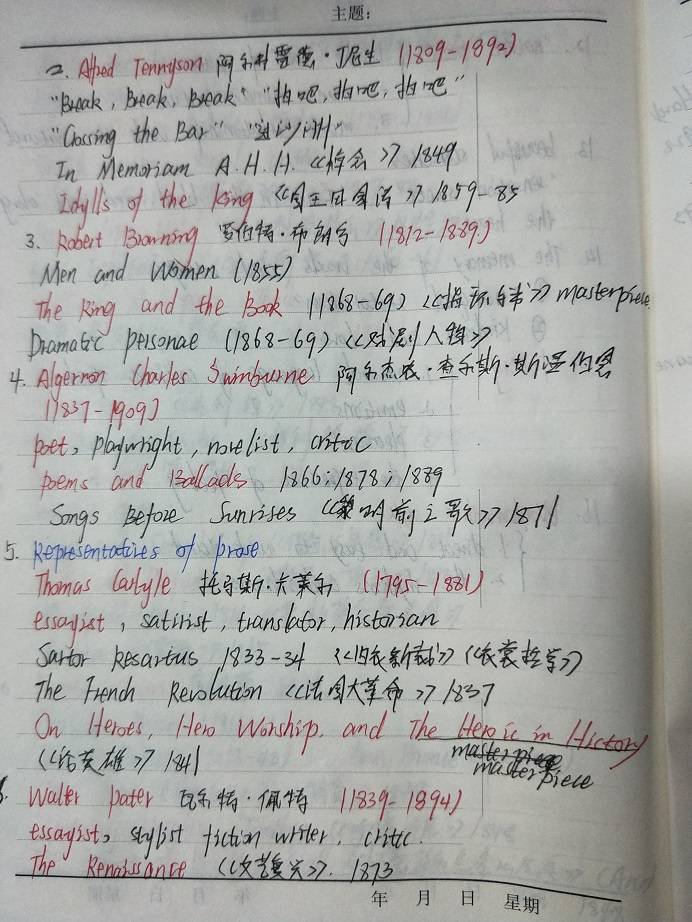 主题:
2. Alfred Tennyson 阿尔弗雷德·丁尼生 (1809-1892)
"Break, Break, Break" "拍吧,拍吧,拍吧"
"Crossing the Bar"
In Memoriam A.H.H. 《悼念》 1849
Idylls of the King 《国王田园诗》 1859-85
3. Robert Browning 罗伯特·布朗宁 (1812-1889)
Men and Women (1855)
The Ring and the Book (1868-69) 《指环与书》 masterpiece
Dramatic personae (1868-69) 《戏剧人物》
4. Algernon Charles Swinburne 阿尔杰农·查尔斯·斯温伯恩
(1837-1909)
poet, playwright, novelist, critic
poems and Ballads 1866; 1878; 1889
Songs Before Sunrises 《黎明前之歌》 1871
5. Representatives of prose
Thomas Carlyle 托马斯·卡莱尔 (1795-1881)
essayist, satirist, translator, historian
Sartor Resartus 1833-34 《旧衣新裁》《衣裳哲学》
The French Revolution 《法国大革命》 1837
On Heroes, Hero Worship, and The Heroic in History
《论英雄》 1841 masterpiece
Walter pater 瓦尔特·佩特 (1839-1894)
essayist, stylist fiction writer, critic.
The Renaissance 《文艺复兴》. 1873
年 月 日 星期